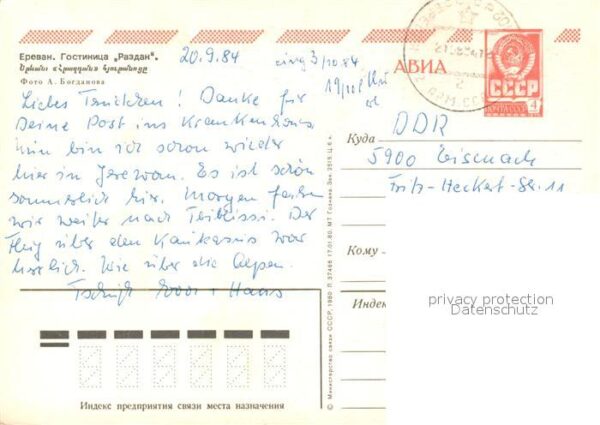 Ереван. Гостиница „Раздан".
Երևան. «Հրազդան» հյուրանոցը
Фото А. Богданова
20.9.84
3/10.84
19/10
АВИА
СССР
ПОЧТА
4
Liebes Trudchen! Danke für
Deine Post ins Krankenhaus
nun bin ich schon wieder
hier in Jerewan. Es ist schön
sommerlich hier. Morgen fahren
wir weiter nach Tbilissi. Der
Flug über den Kaukasus war
herrlich. Wie über die Alpen.
Tschüß + Hans
Куда
DDR
5900 Eisenach
Fritz-Heckert-Str. 11
Кому
Индекс
privacy protection
Datenschutz
© Министерство связи СССР, 1980 П 37466 17.01.80. МТ Гознака. Зак. 2515. Ц. 6 к.
Индекс предприятия связи места назначения